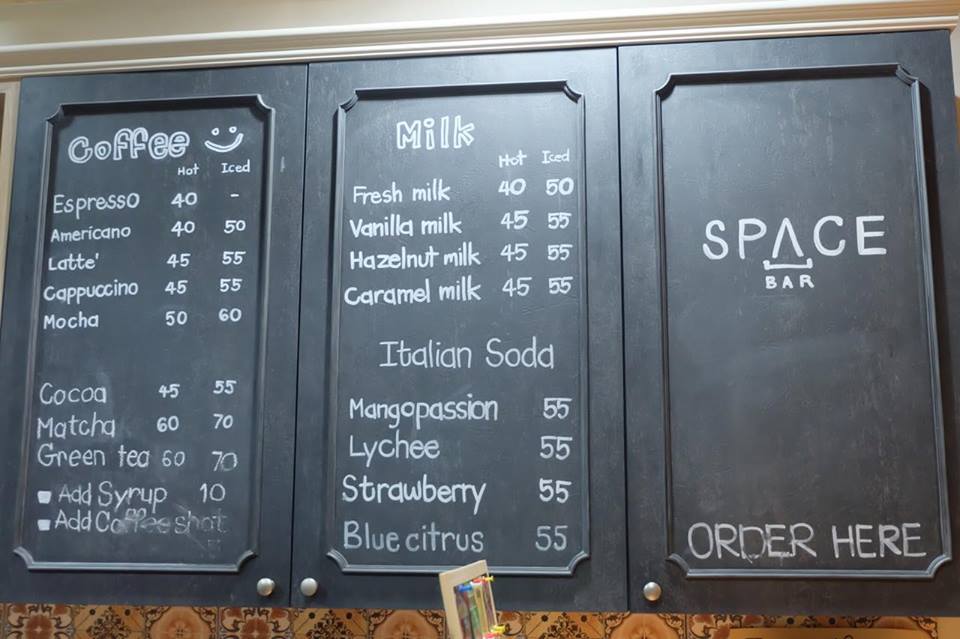 Coffee
Hot Iced
Espresso 40 -
Americano 40 50
Latte' 45 55
Cappuccino 45 55
Mocha 50 60
Cocoa 45 55
Matcha 60 70
Green tea 60 70
Add Syrup 10
Add Coffee shot
Milk
Hot Iced
Fresh milk 40 50
Vanilla milk 45 55
Hazelnut milk 45 55
Caramel milk 45 55
Italian Soda
Mangopassion 55
Lychee 55
Strawberry 55
Blue citrus 55
SPACE
BAR
ORDER HERE